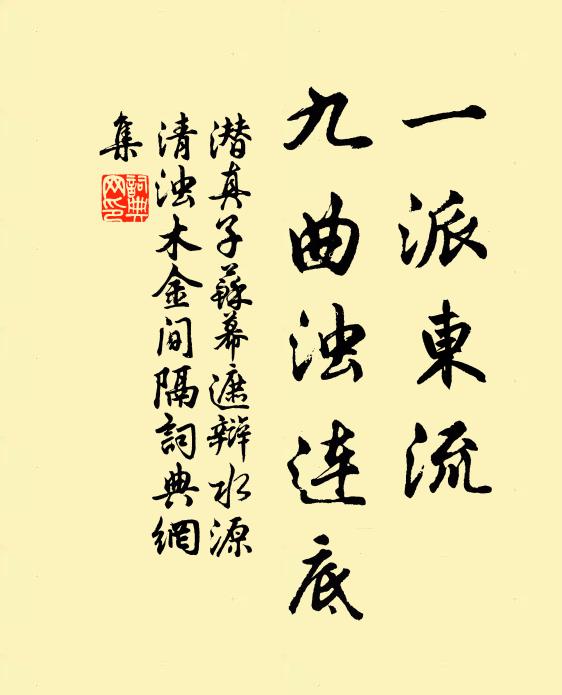 一派東流
九曲浊连底
潜真子蘇幕遮辩水源
清浊木金间隔詞典網
集
詞典
网印